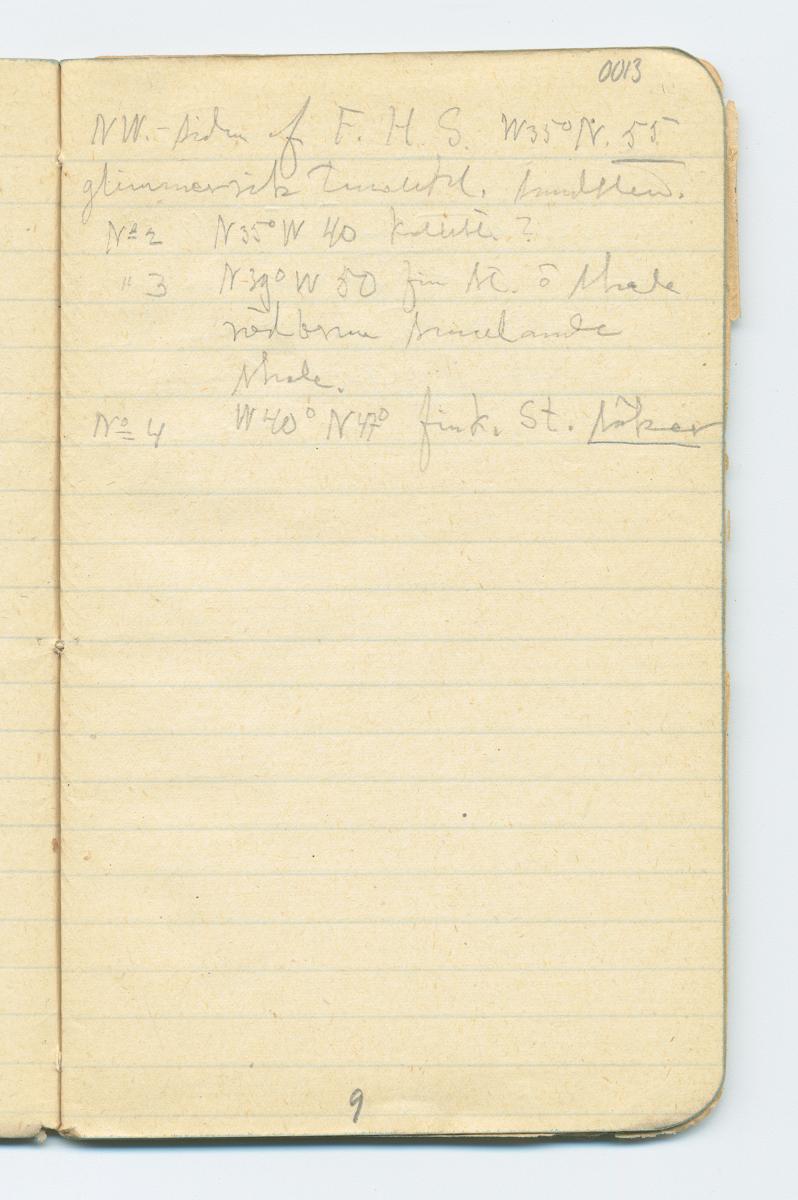 0013
NW.-sidan af F. H. S. W35°N. 55
glimmerrik sandsten.
No 2 N35°W 40
" 3 N39°W 50 fin St. o shale
rödbrun
shale.
No 4 W40°N47° fink. St. säker
9